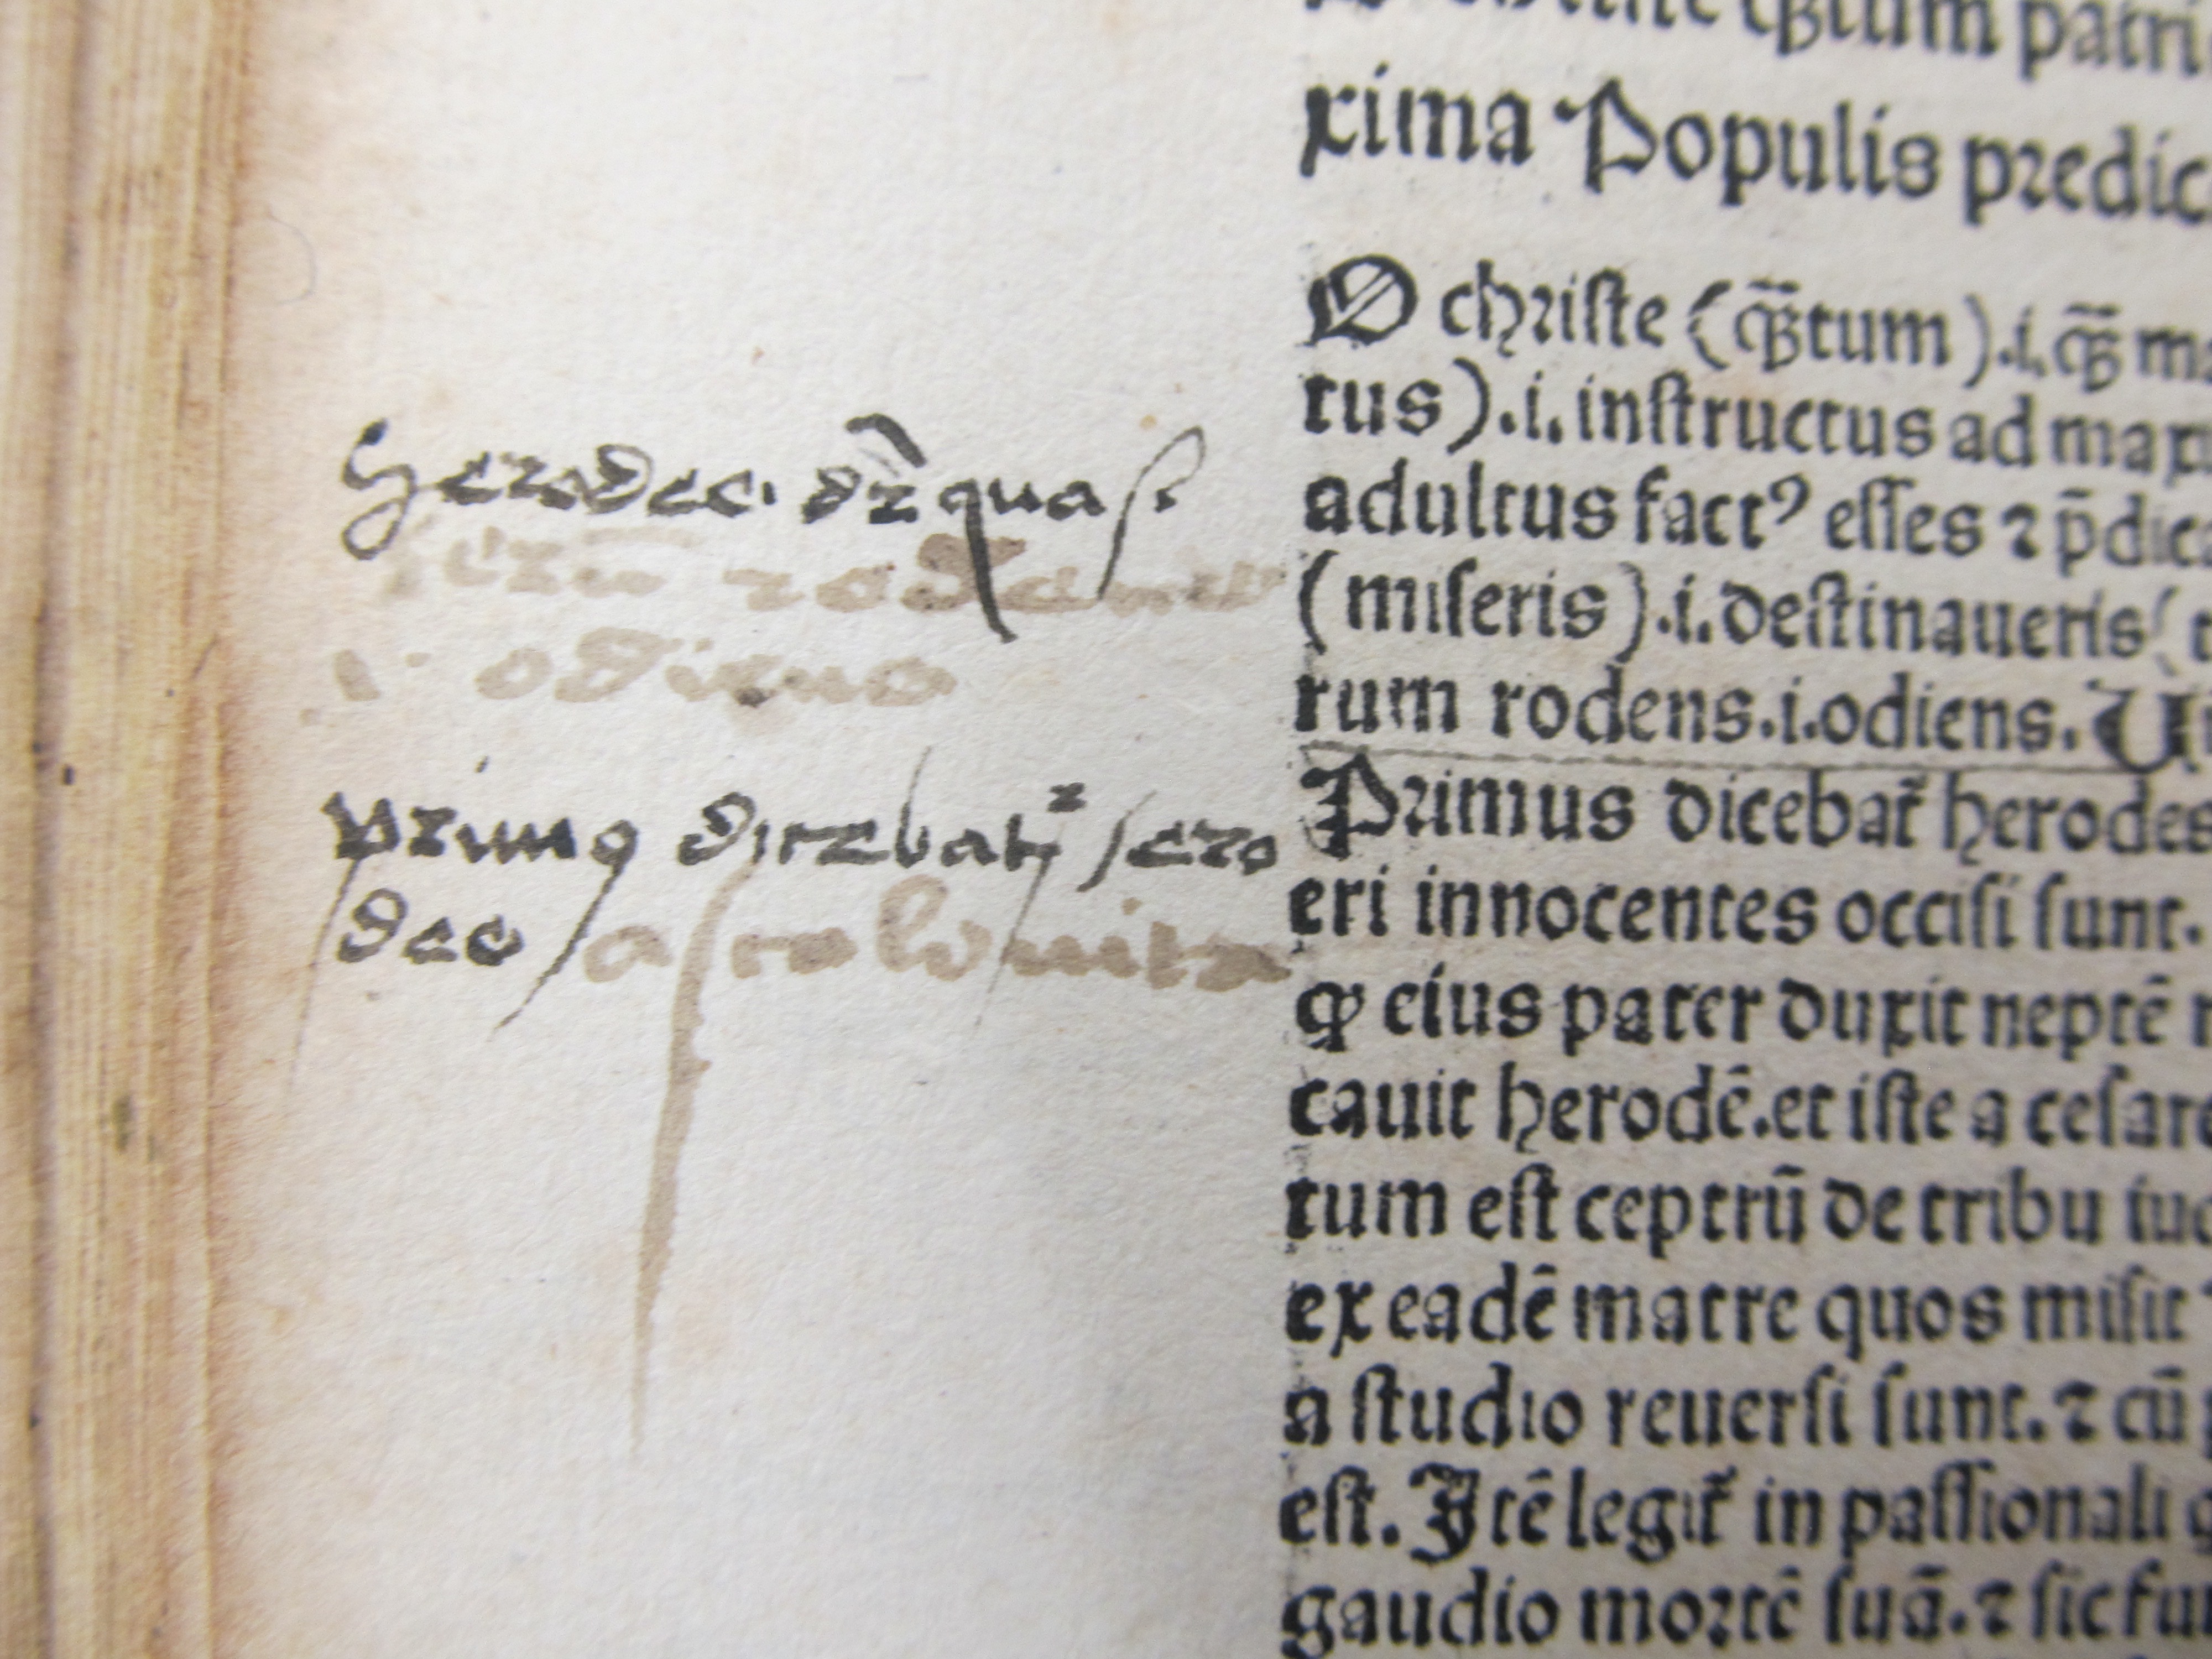 herodes. dr̄ quasi
rodens
.i. odiens
primus dicebat᷑ hero
des ascolonita
xima Populis predic
O christe (qȝ̄tum).i.qȝ̄ ma
tus).i. instructus ad maxi
adultus factꝰ esses ⁊ p̄dica
(miseris).i. destinaueris
rum rodens.i.odiens.
Primus dicebat᷑ herodes
eri innocentes occisi sunt.
ꝙ eius pater duxit neptē
cauit herodē.et iste a cesare
tum est ceptrū de tribu iud
ex eadē matre quos misit
a studio reuersi sunt.⁊ cū
est. Itē legit᷑ in passionali
gaudio mortē suā.⁊ sic fu